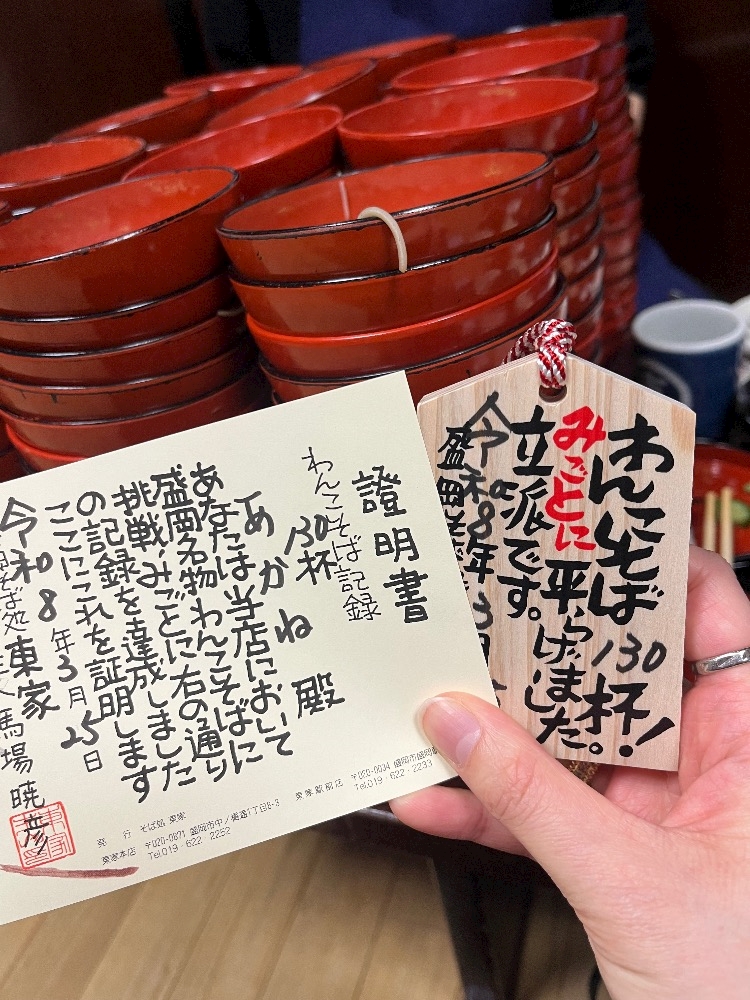 證明書
わんこそば記録
130杯
あかね 殿
あなたは当店において
盛岡名物わんこそばに
挑戦みごとに右の通り
の記録を達成しました
ここにこれを証明します
令和8年3月25日
そば処 東家
馬場 暁彦
発行 そば処 東家
東家本店 〒020-0871 盛岡市中ノ橋通1丁目8-3
Tel.019-622-2252
東家駅前店 〒020-0034 盛岡市盛岡
Tel.019-622-2233
わんこそば130杯!
みごとに平らげました。
立派です。
令和8年3月
盛岡そば